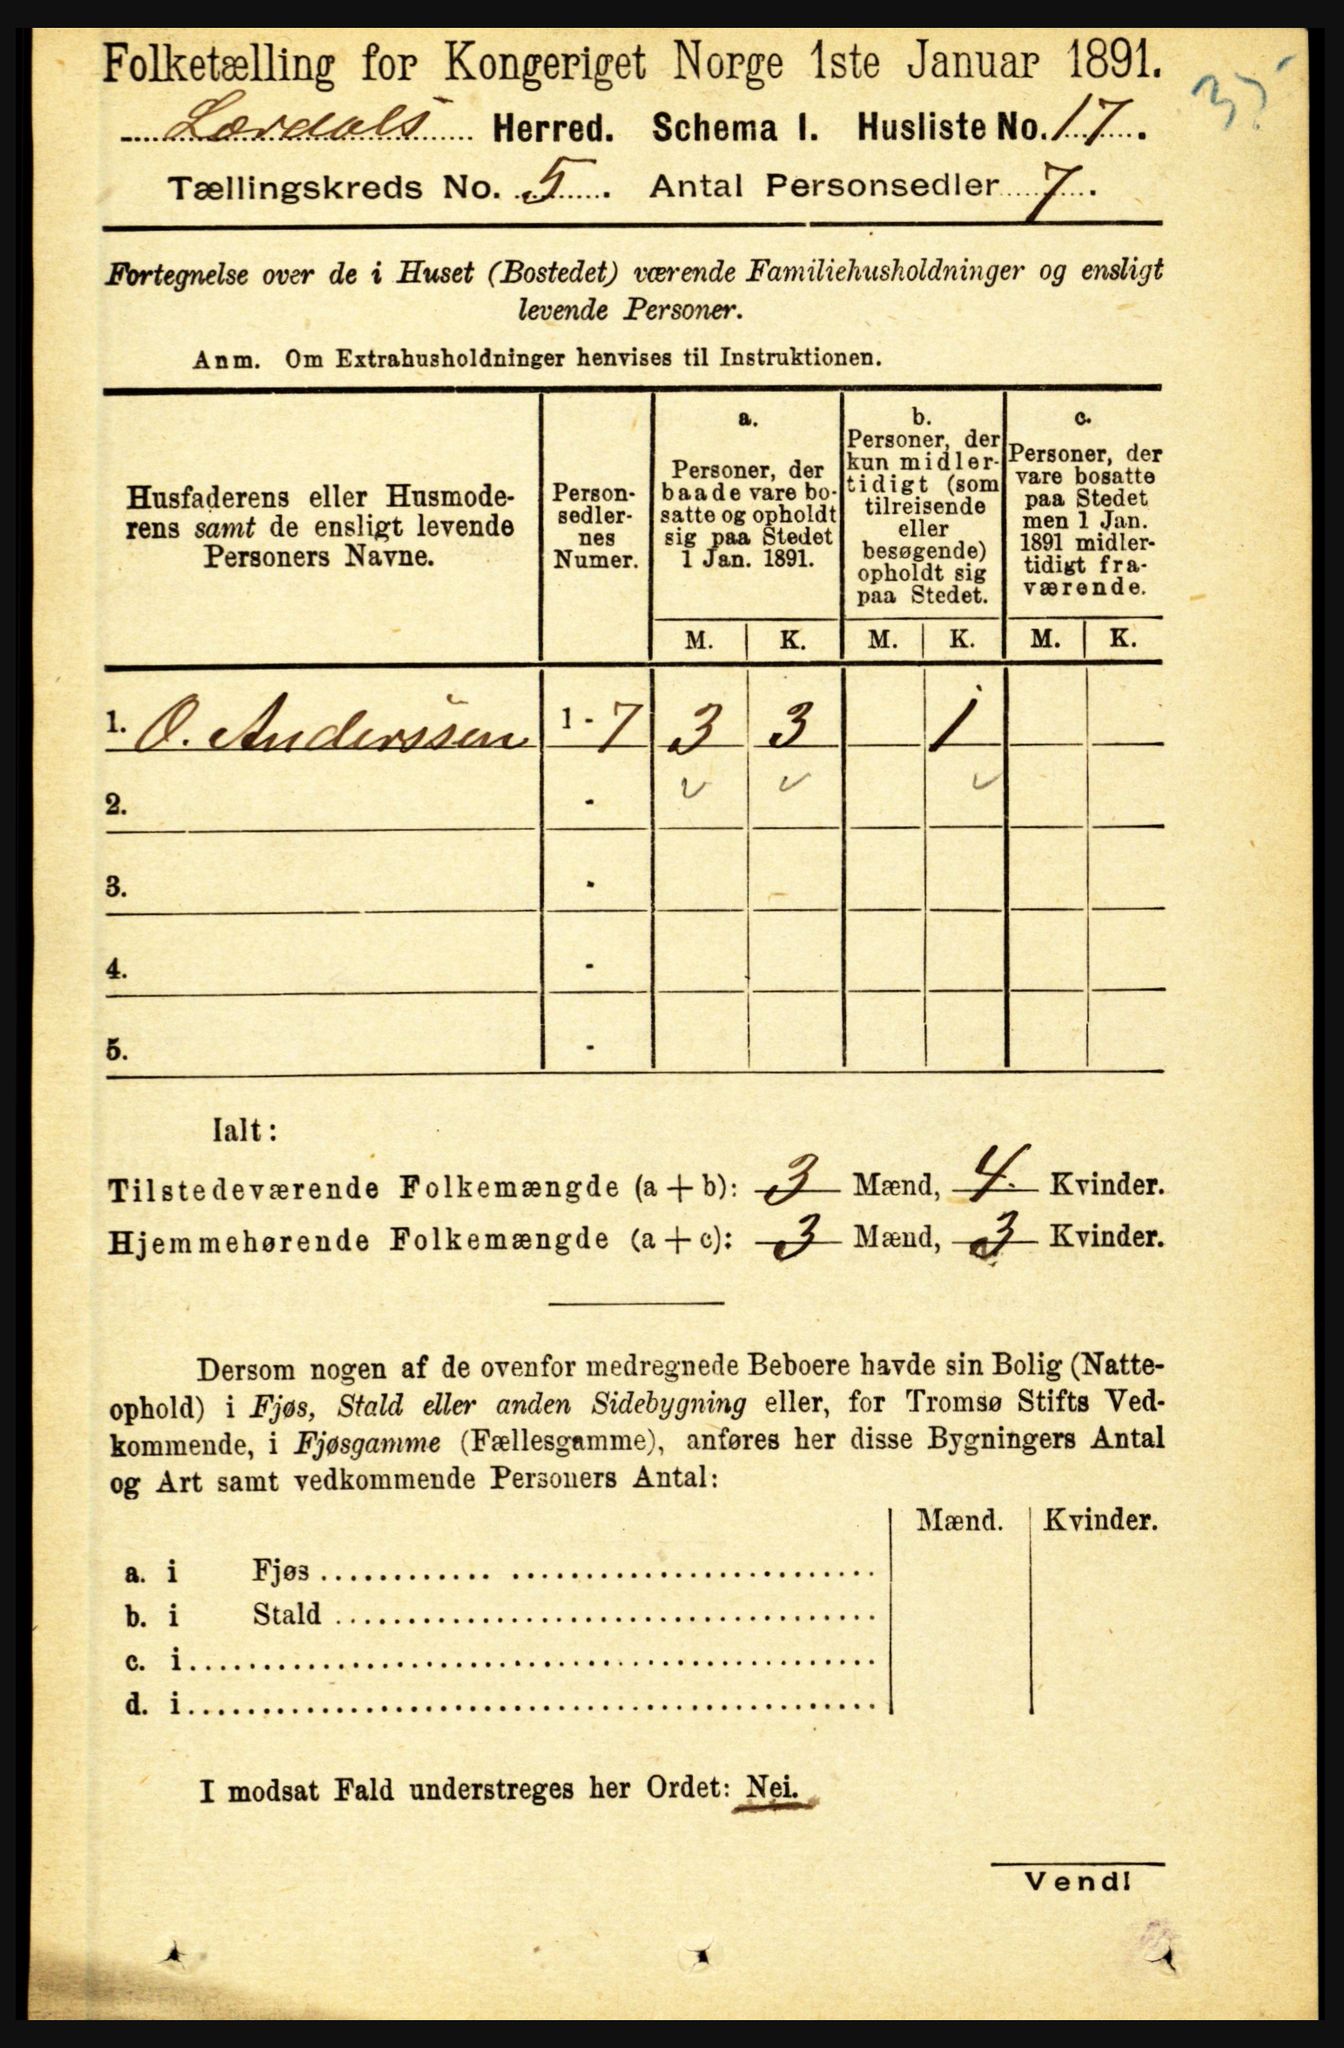 Folketælling for Kongeriget Norge 1ste Januar 1891.
35
Lærdals Herred. Schema I. Husliste No. 17.
Tællingskreds No. 5. Antal Personsedler 7.
Fortegnelse over de i Huset (Bostedet) værende Familiehusholdninger og ensligt
levende Personer.
Anm. Om Extrahusholdninger henvises til Instruktionen.
Husfaderens eller Husmode-
rens samt de ensligt levende
Personers Navne.
Person-
sedler-
nes
Numer.
a.
Personer, der
baade vare bo-
satte og opholdt
sig paa Stedet
1 Jan. 1891.
b.
Personer, der
kun midler-
tidigt (som
tilreisende
eller
besøgende)
opholdt sig
paa Stedet.
c.
Personer, der
vare bosatte
paa Stedet
men 1 Jan.
1891 midler-
tidigt fra-
værende.
M. K. M. K. M. K.
1. O. Anderssen 1 - 7 3 3 1
2. -
3. -
4. -
5. -
Ialt:
Tilstedeværende Folkemængde (a + b): 3 Mænd, 4. Kvinder.
Hjemmehørende Folkemængde (a + c): 3 Mænd, 3 Kvinder.
Dersom nogen af de ovenfor medregnede Beboere havde sin Bolig (Natte-
ophold) i Fjøs, Stald eller anden Sidebygning eller, for Tromsø Stifts Ved-
kommende, i Fjøsgamme (Fællesgamme), anføres her disse Bygningers Antal
og Art samt vedkommende Personers Antal:
Mænd. Kvinder.
a. i Fjøs
b. i Stald
c. i
d. i
I modsat Fald understreges her Ordet: Nei.
Vend!